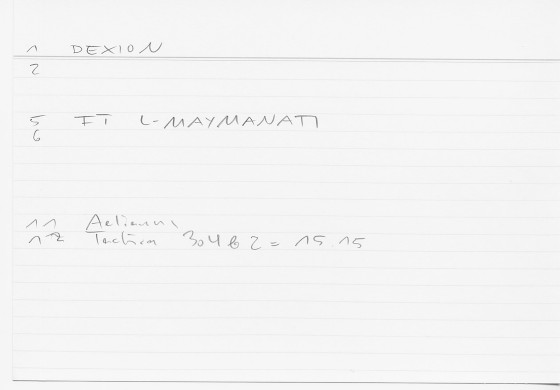 1 DEXION
2
5 FI L-MAYMANATI
6
11 Aelianus
12 Tactica 304 b 2 = 15 15